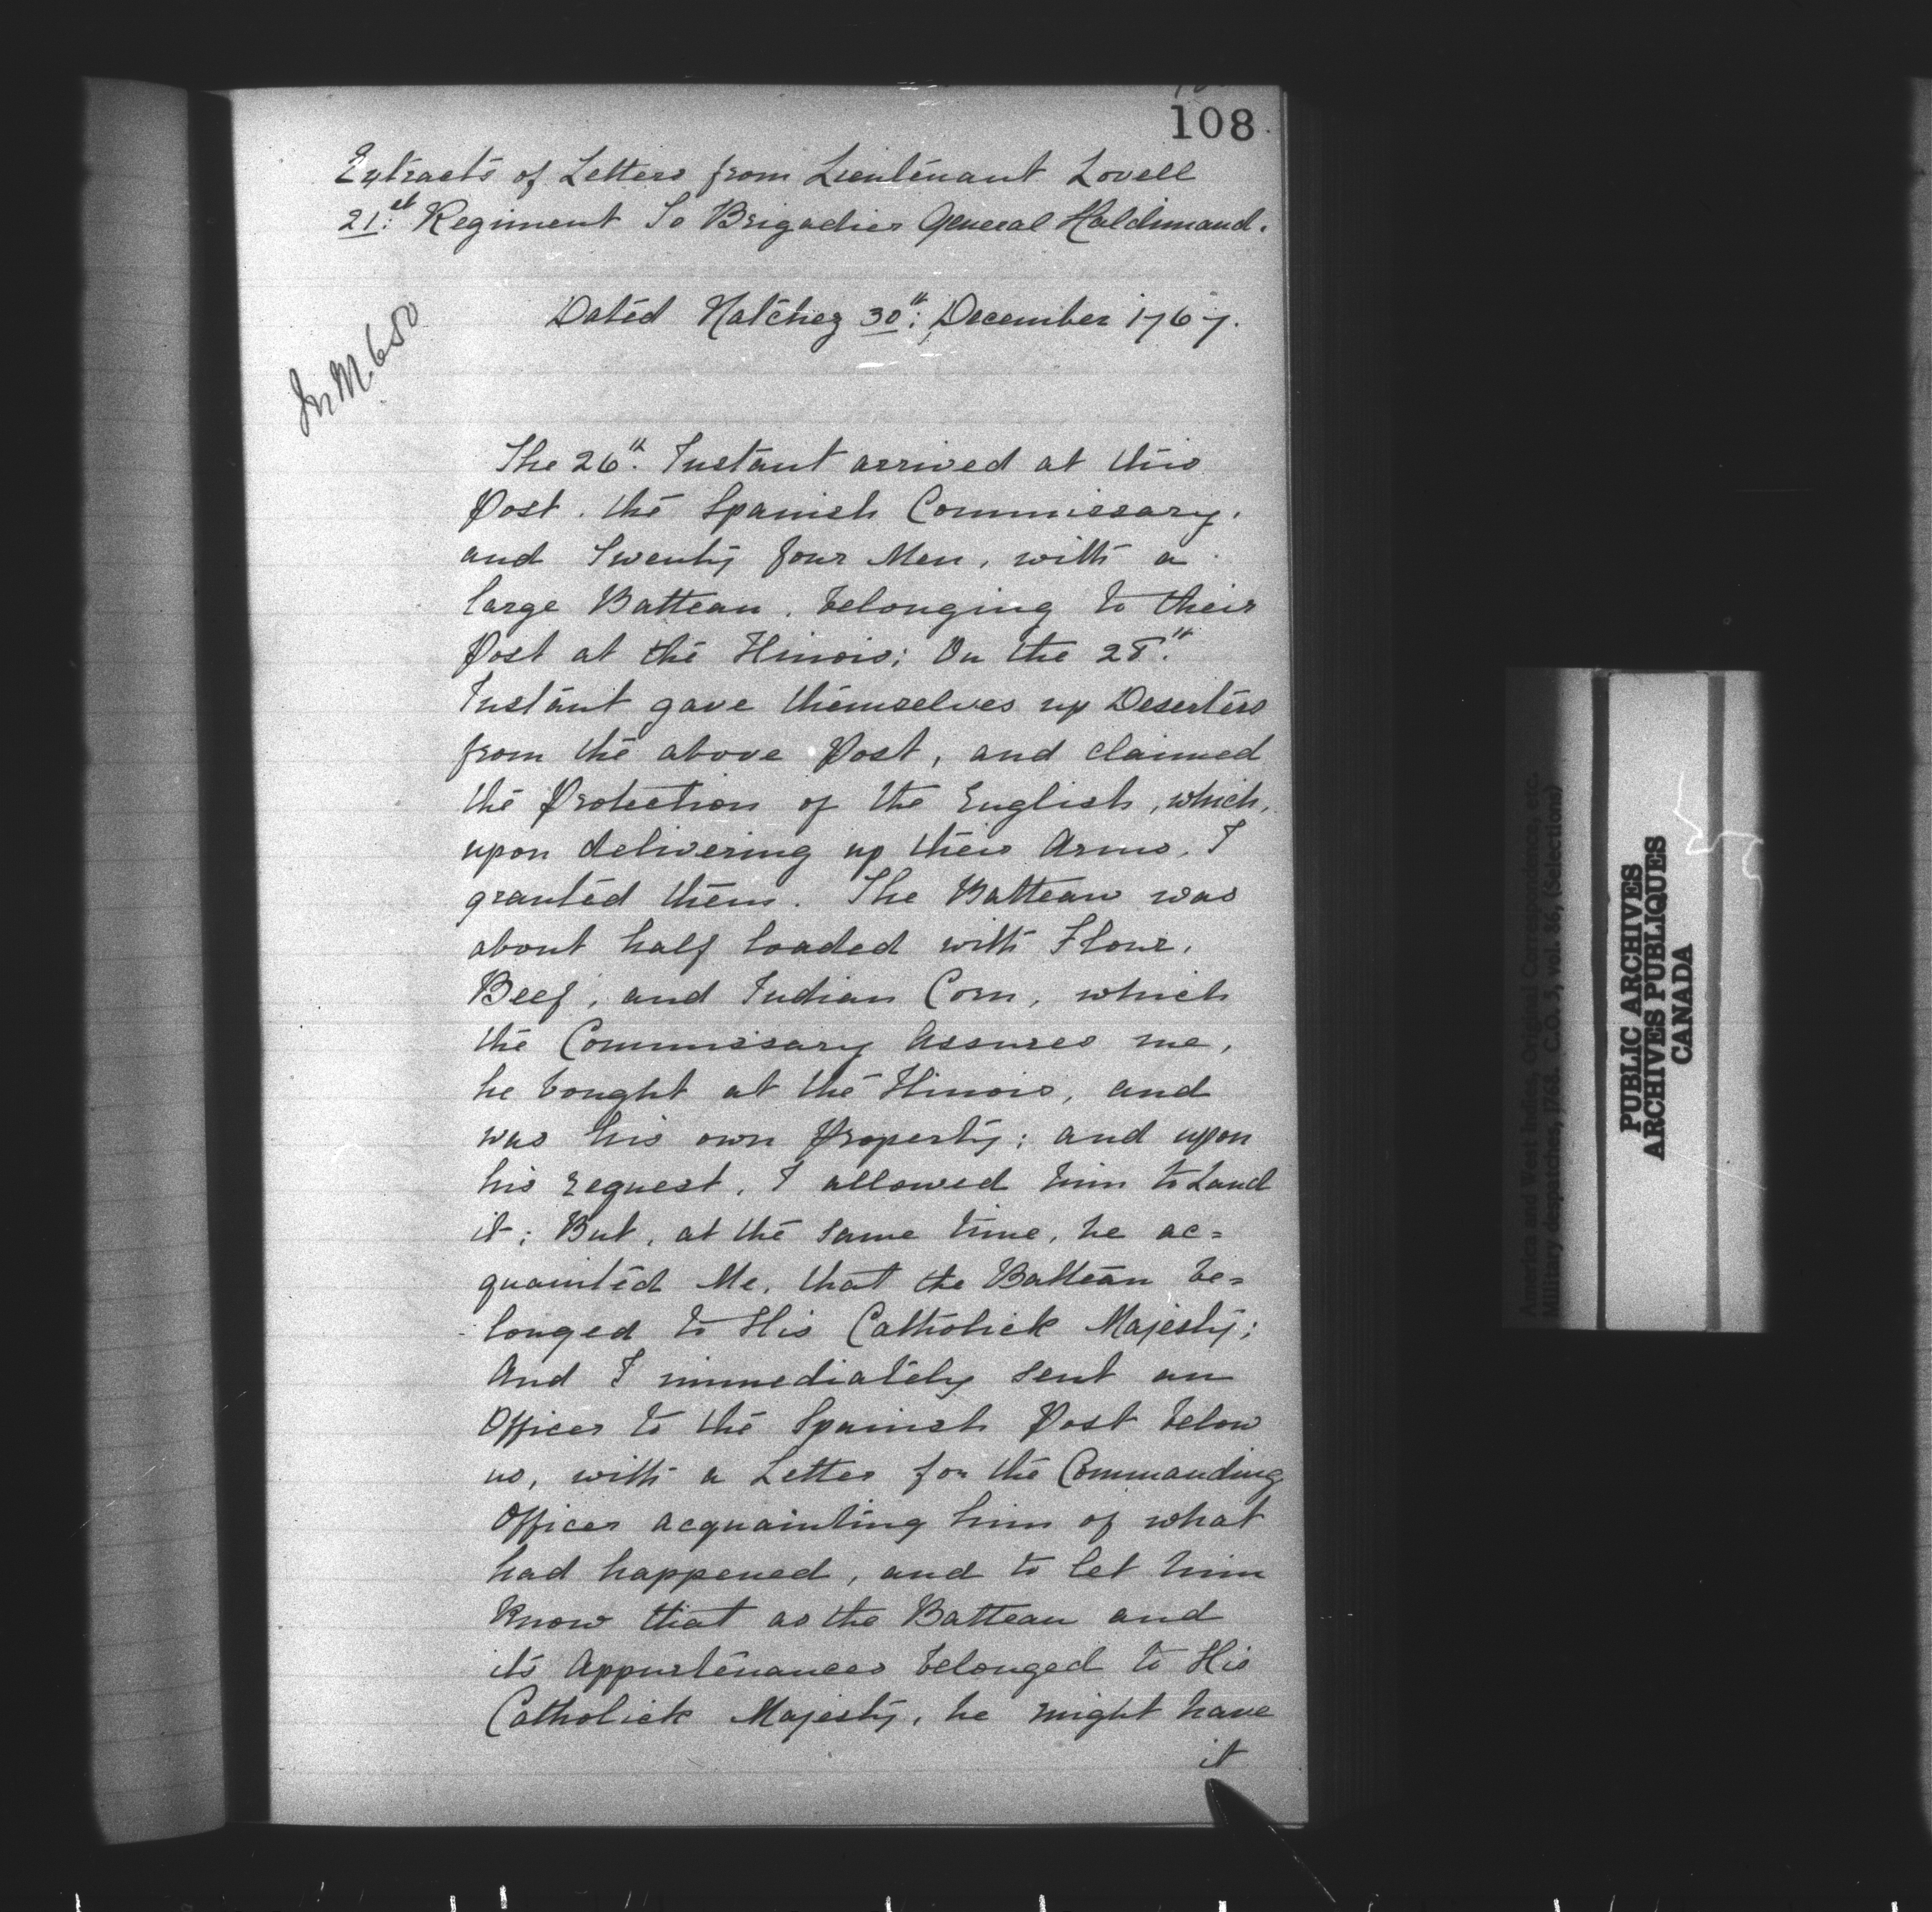 108
Extracts of Letters from Lieutenant Lovell
21st Regiment To Brigadier General Haldimand.
Dated Natchez 30th: December 1767.
In M. 680
The 26th. Instant arrived at this
Post, the Spanish Commissary,
and Twenty four Men, with a
large Batteau, belonging to their
Post at the Ilinois; On the 28th.
Instant gave themselves up Deserters
from the above Post, and claimed
the Protection of the English, which,
upon delivering up their Arms, I
granted them. The Batteau was
about half loaded with Flour,
Beef, and Indian Corn, which
the Commissary Assures me,
he bought at the Ilinois, and
was his own Property; and upon
his request, I allowed him to Land
it; But, at the same time, he ac=
quainted Me, that the Batteau be=
longed to His Catholick Majesty;
And I immediately sent an
Officer to the Spanish Post below
us, with a Letter for the Commanding
Officer acquainting him of what
had happened, and to let him
know that as the Batteau and
its Appurtenances belonged to His
Catholick Majesty, he might have
it
America and West Indies, Original Correspondence, etc.
Military despatches, 1768. C.O. 5, vol. 86, (Selections)
PUBLIC ARCHIVES
ARCHIVES PUBLIQUES
CANADA